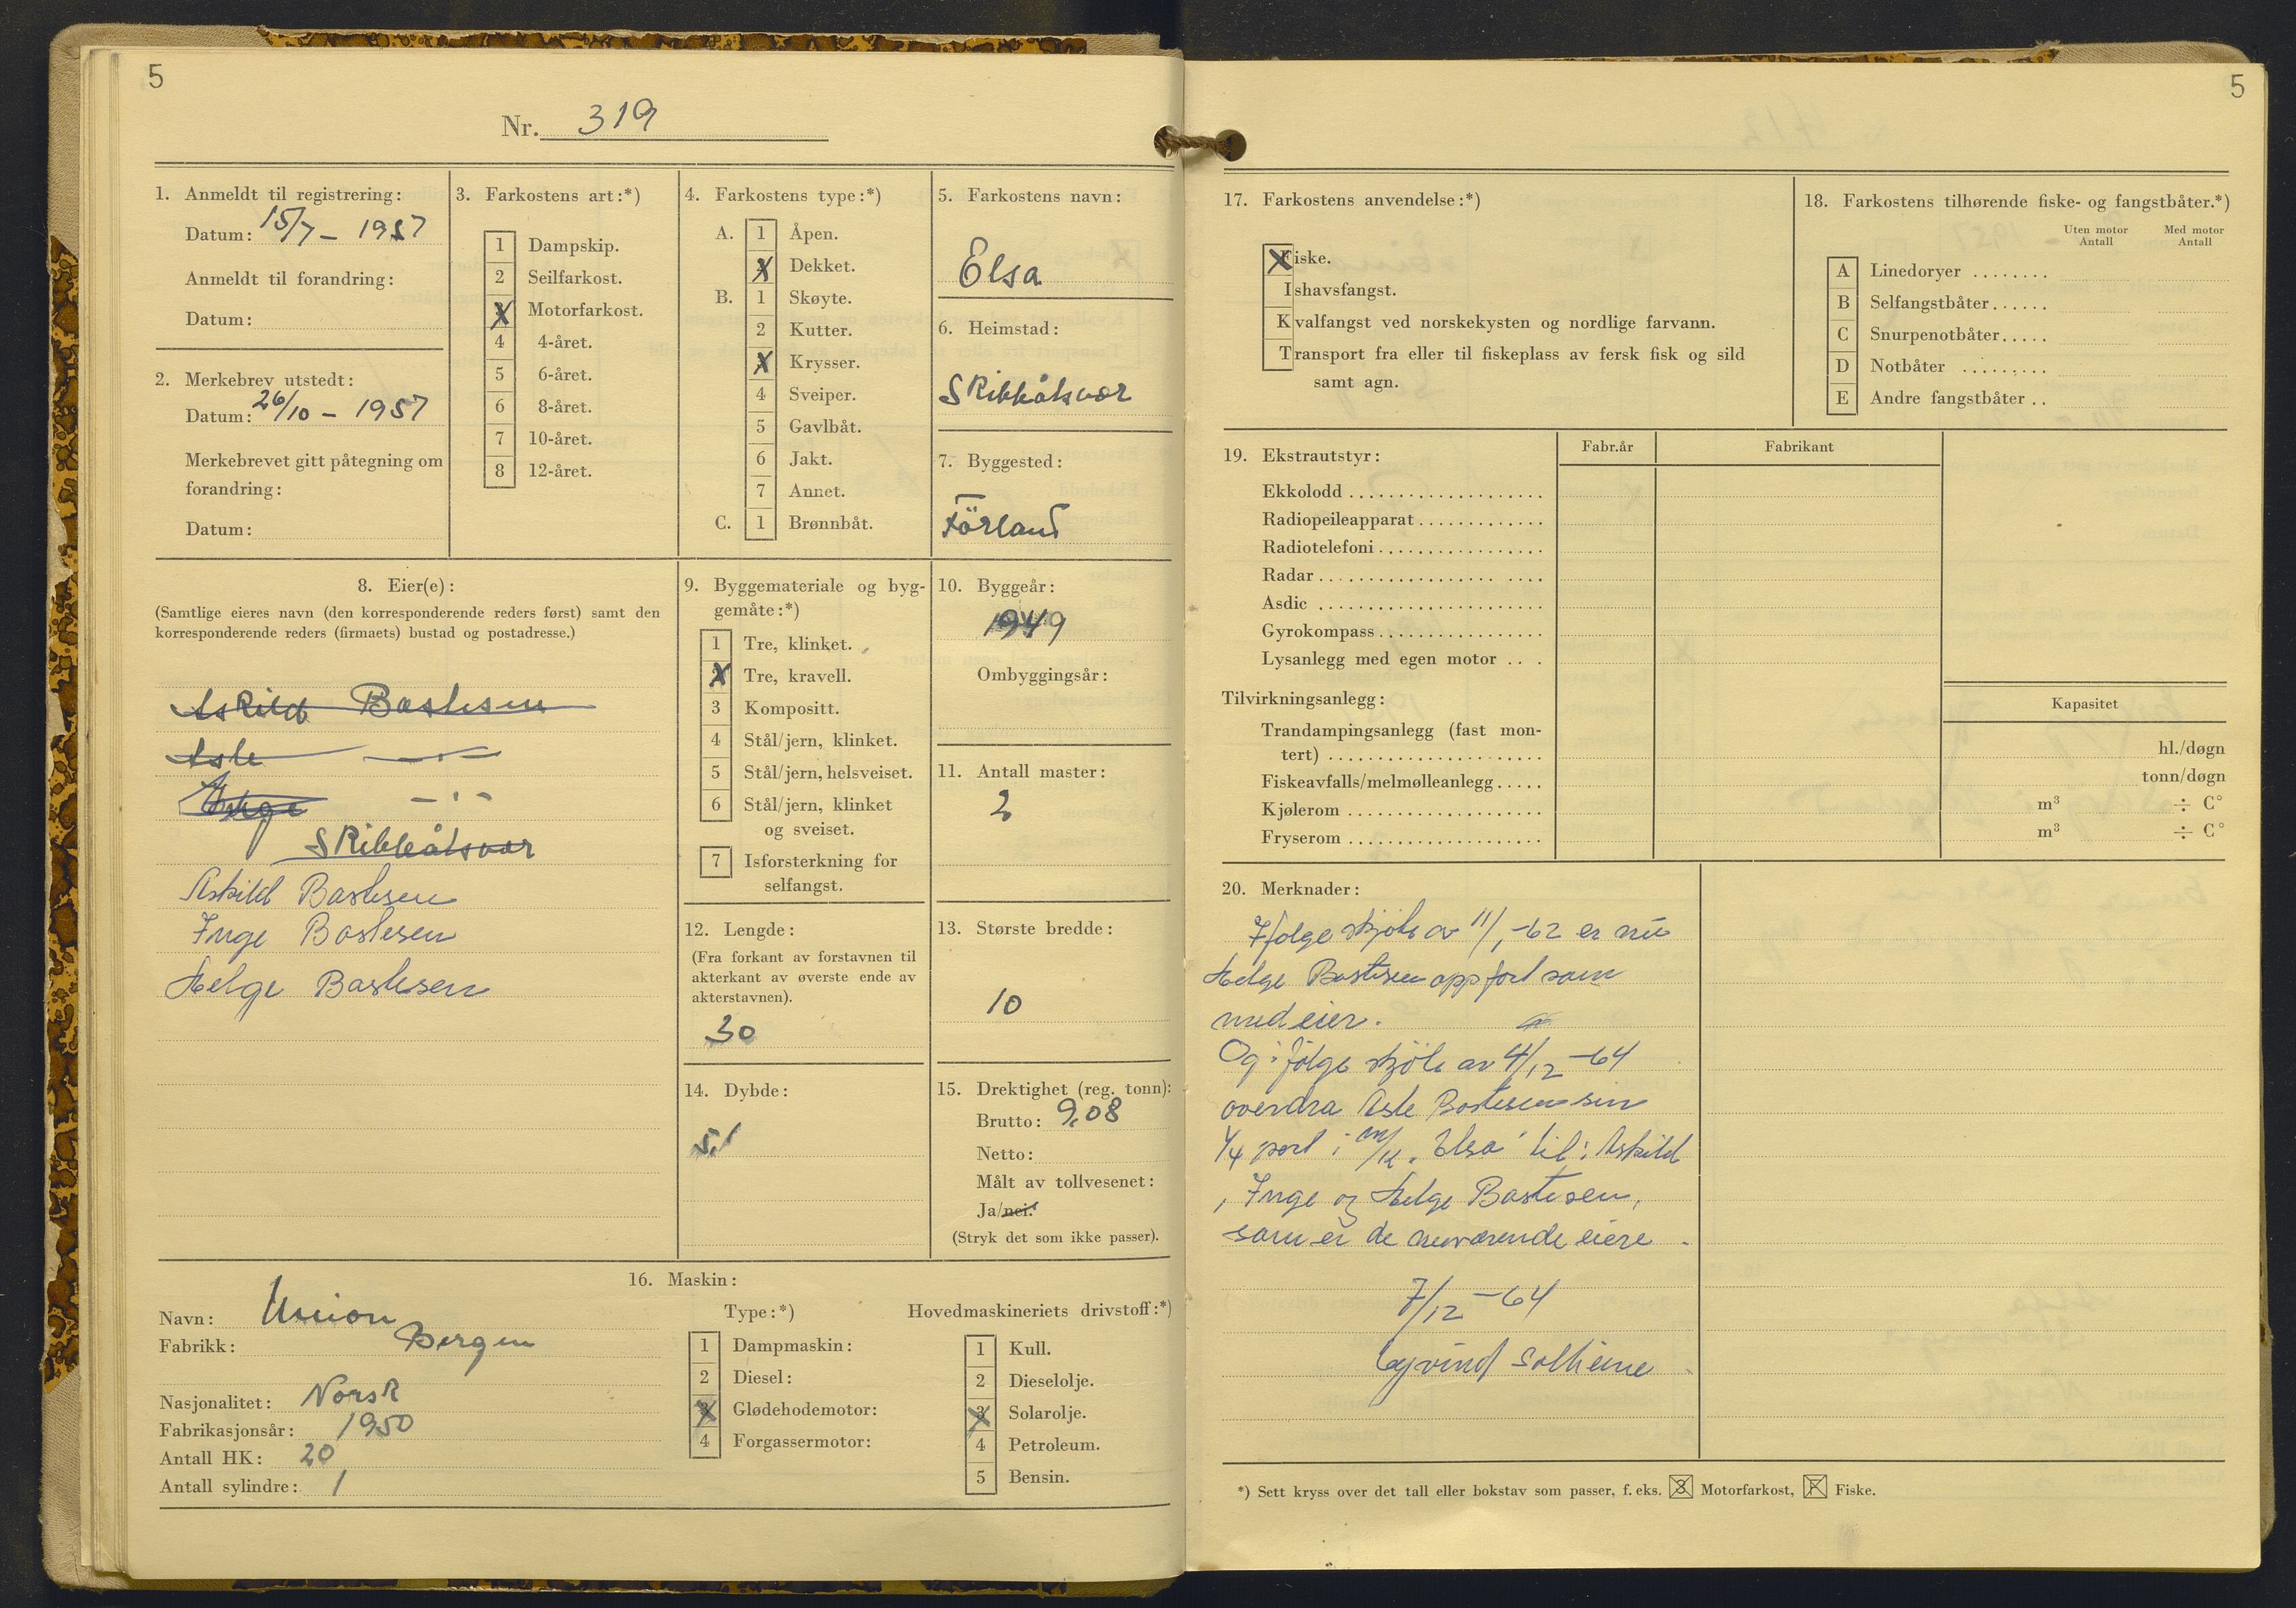 5
Nr. 319
1. Anmeldt til registrering:
Datum: 15/7 - 1957
Anmeldt til forandring:
Datum:
2. Merkebrev utstedt:
Datum: 26/10 - 1957
Merkebrevet gitt påtegning om
forandring:
Datum:
3. Farkostens art:*)
1 Dampskip.
2 Seilfarkost.
X Motorfarkost.
4 4-året.
5 6-året.
6 8-året.
7 10-året.
8 12-året.
4. Farkostens type:*)
A. 1 Åpen.
X Dekket.
B. 1 Skøyte.
2 Kutter.
X Krysser.
4 Sveiper.
5 Gavlbåt.
6 Jakt.
7 Annet.
C. 1 Brønnbåt.
5. Farkostens navn:
Elsa
6. Heimstad:
Skibbåtsvær
7. Byggested:
Förland
8. Eier(e):
(Samtlige eieres navn (den korresponderende reders først) samt den
korresponderende reders (firmaets) bustad og postadresse.)
Askild Bastesen
Asle — " —
Inge - " -
Skibbåtsvær
Askild Bastesen
Inge Bastesen
Helge Bastesen
9. Byggemateriale og byg-
gemåte:*)
1 Tre, klinket.
X Tre, kravell.
3 Kompositt.
4 Stål/jern, klinket.
5 Stål/jern, helsveiset.
6 Stål/jern, klinket
og sveiset.
7 Isforsterkning for
selfangst.
10. Byggeår:
1949
Ombyggingsår:
11. Antall master:
2
12. Lengde:
(Fra forkant av forstavnen til
akterkant av øverste ende av
akterstavnen).
30
13. Største bredde:
10
14. Dybde:
15. Drektighet (reg. tonn):
Brutto: 9,08
Netto:
Målt av tollvesenet:
Ja/nei.
(Stryk det som ikke passer).
16. Maskin:
Navn: Union
Fabrikk: Bergen
Nasjonalitet: Norsk
Fabrikasjonsår: 1950
Antall HK: 20
Antall sylindre: 1
Type:*)
1 Dampmaskin:
2 Diesel:
X Glødehodemotor:
4 Forgassermotor:
Hovedmaskineriets drivstoff:*)
1 Kull.
2 Dieselolje.
X Solarolje.
4 Petroleum.
5 Bensin.
5
17. Farkostens anvendelse:*)
Fiske.
Ishavsfangst.
Kvalfangst ved norskekysten og nordlige farvann.
Transport fra eller til fiskeplass av fersk fisk og sild
samt agn.
18. Farkostens tilhørende fiske- og fangstbåter.*)
Uten motor Med motor
Antall Antall
A Linedoryer ........
B Selfangstbåter......
C Snurpenotbåter.....
D Notbåter .........
E Andre fangstbåter ..
19. Ekstrautstyr: Fabr.år Fabrikant
Ekkolodd ....................
Radiopeileapparat .............
Radiotelefoni .................
Radar ........................
Asdic .......................
Gyrokompass .................
Lysanlegg med egen motor ...
Tilvirkningsanlegg: Kapasitet
Trandampingsanlegg (fast mon-
tert) ...................... hl./døgn
Fiskeavfalls/melmølleanlegg ..... tonn/døgn
Kjølerom .................... m³ ÷ C°
Fryserom .................... m³ ÷ C°
20. Merknader:
Ifølge skjöte av 11/1 -62 er nu
Helge Bastesen oppfört som
medeier.
Og ifölge skjöte av 4/12 -64
overdra Asle Bastesen sin
1/4 part i m/k. "Elsa" til: Askild
, Inge og Helge Bastesen,
som er de nuværende eiere.
7/12 -64
Eyvind Solheim
*) Sett kryss over det tall eller bokstav som passer, f. eks. 3 Motorfarkost, F Fiske.